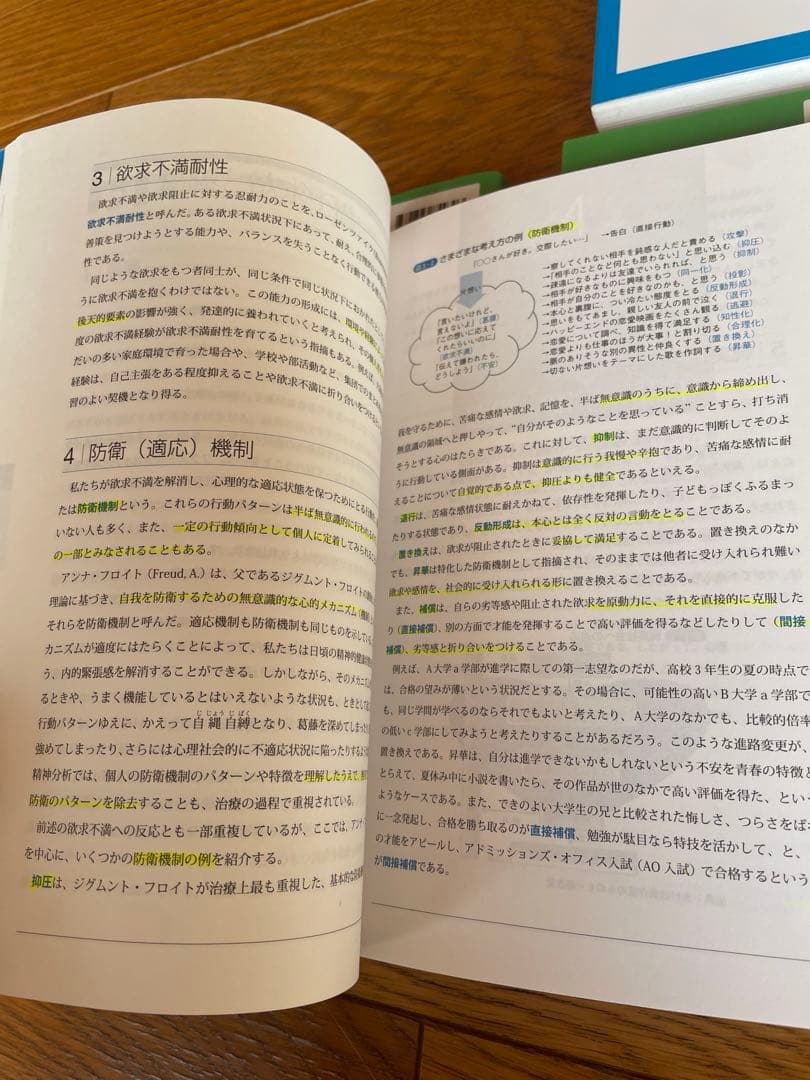 3 欲求不満耐性
欲求不満や欲求阻止に対する忍耐力のことを、ローゼンツァイク
欲求不満耐性と呼んだ。ある欲求不満状況下にあって、耐え、合理的に
善策を見つけようとする能力や、バランスを失うことなく行動できる
性である。
同じような欲求をもつ者同士が、同じ条件で同じ状況下におかれた
うに欲求不満を抱くわけではない。この能力の形成には、環境や
後天的要素の影響が強く、発達的に養われていくと考えられ、その
度の欲求不満経験が欲求不満耐性を育てるという指摘もある。例えば、
だいの多い家庭環境で育った場合や、学校や部活動など、集団での
経験は、自己主張をある程度抑えることや欲求不満に折り合いをつける
習のよい契機となり得る。
4 防衛（適応）機制
私たちが欲求不満を解消し、心理的な適応状態を保つためにとる
たは防衛機制という。これらの行動パターンは半ば無意識的に行われ
いない人も多く、また、一定の行動傾向として個人に定着してみられる
の一部とみなされることもある。
アンナ・フロイト（Freud, A.）は、父であるジグムント・フロイトの
理論に基づき、自我を防衛するための無意識的な心的メカニズム
それらを防衛機制と呼んだ。適応機制も防衛機制も同じものを示してい
カニズムが適度にはたらくことによって、私たちは日頃の精神的健康
う、内的緊張感を解消することができる。しかしながら、そのメカニ
るときや、うまく機能しているとはいえないような状況も、ときとして
行動パターンゆえに、かえって自縄自縛となり、葛藤を深めてしまった
強めてしまったり、さらには心理社会的に不適応状況に陥ったりする
精神分析では、個人の防衛機制のパターンや特徴を理解したうえで、
防衛のパターンを除去することも、治療の過程で重視されている。
前述の欲求不満への反応とも一部重複しているが、ここでは、アンナ・
を中心に、いくつかの防衛機制の例を紹介する。
抑圧は、ジグムント・フロイトが治療上最も重視した、基本的な
さまざまな考え方の例（防衛機制）
「○○さんが好き。交際したい…」 →告白（直接行動）
片想い
「言いたいけれど、
言えないよ」（葛藤）
「この想いに応えて
くれたらいいのに」
（欲求不満）
「伝えて嫌われたら、
どうしよう」（不安）
→察してくれない相手を鈍感な人だと責める（攻撃）
→「相手のことなど何とも思わない」と思い込む（抑圧）
→疎遠になるよりは友達でいられれば、と思う（抑制）
→相手が好きなものに興味をもつ（同一化）
→相手が自分のことを好きなのかも、と思う（投影）
→本心と裏腹に、つい冷たい態度をとる（反動形成）
→思いをもてあまし、親しい友人の前で泣く（退行）
→ハッピーエンドの恋愛映画をたくさん観る（逃避）
→恋愛について調べ、知識を得て満足する（知性化）
→恋愛よりも仕事のほうが大事！と割り切る（合理化）
→脈のありそうな別の異性と仲良くする（置き換え）
→切ない片想いをテーマにした歌を作詞する（昇華）
我を守るために、苦痛な感情や欲求、記憶を、半ば無意識のうちに、意識から締め出し、
無意識の領域へと押しやって、“自分がそのようなことを思っている”ことすら、打ち消
そうとする心のはたらきである。これに対して、抑制は、まだ意識的に判断してそのよ
うに行動している側面がある。抑制は意識的に行う我慢や辛抱であり、苦痛な感情に耐
えることについて自覚的である点で、抑圧よりも健全であるといえる。
退行は、苦痛な感情状態に耐えかねて、依存性を発揮したり、子どもっぽくふるまっ
たりする状態であり、反動形成は、本心とは全く反対の言動をとることである。
置き換えは、欲求が阻止されたときに妥協して満足することである。置き換えのなか
でも、昇華は特化した防衛機制として指摘され、そのままでは他者に受け入れられ難い
欲求や感情を、社会的に受け入れられる形に置き換えることである。
また、補償は、自らの劣等感や阻止された欲求を原動力に、それを直接的に克服した
り（直接補償）、別の方面で才能を発揮することで高い評価を得るなどしたりして（間接
補償）、劣等感と折り合いをつけることである。
例えば、A大学a学部が進学に際しての第一志望なのだが、高校3年生の夏の時点で
は、合格の望みが薄いという状況だとする。その場合に、可能性の高いB大学a学部で
も、同じ学問が学べるのならそれでもよいと考えたり、A大学のなかでも、比較的倍率
の低いc学部にしてみようと考えたりすることがあるだろう。このような進路変更が、
置き換えである。昇華は、自分は進学できないかもしれないという不安を青春の特徴と
とらえて、夏休み中に小説を書いたら、その作品が世のなかで高い評価を得た、という
ようなケースである。また、できのよい大学生の兄と比較された悔しさ、つらさをば
に一念発起し、合格を勝ち取るのが直接補償、勉強が駄目なら特技を活かして、と、
の才能をアピールし、アドミッションズ・オフィス入試（AO入試）で合格するという
が間接補償である。